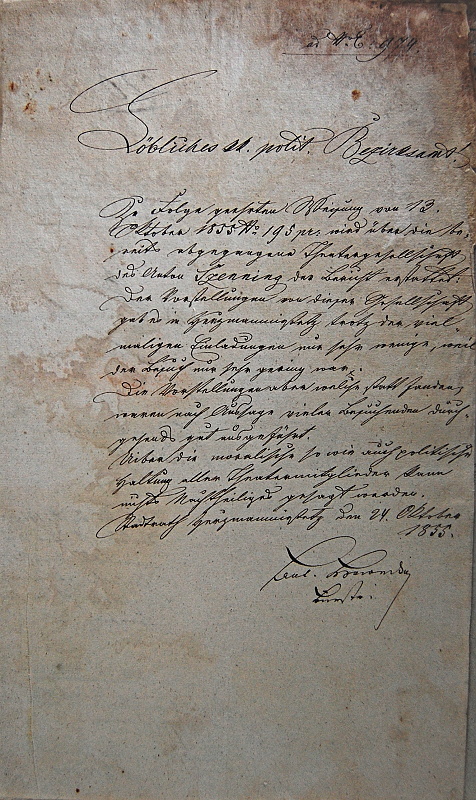 ad N. E. 974.
Löbliches k. k. polit. Bezirksamt!
Zu Folge geehrten Weisung von 13.
Oktober 1855 No. 195 pr: wird über die be-
reits abgegangene Theatergesellschaft
des Anton Spenning der Bericht erstattet:
Der Vorstellungen von dieser Gesellschaft
gab es in Herzmanmiestetz trotz der viel-
maligen Einladungen nur sehr wenige, weil
der Besuch nur sehr gering war.
Die Vorstellungen aber welche statt fanden,
waren nach Aussage vieler Besuchenden durch-
gehends gut ausgeführt.
Uiber die moralische so wie auch politische
Haltung aller Theatermitglieder kann
nichts Nachtheiliges gesagt werden.
Stadtrath Herzmanmiestetz den 24. Oktober
1855.